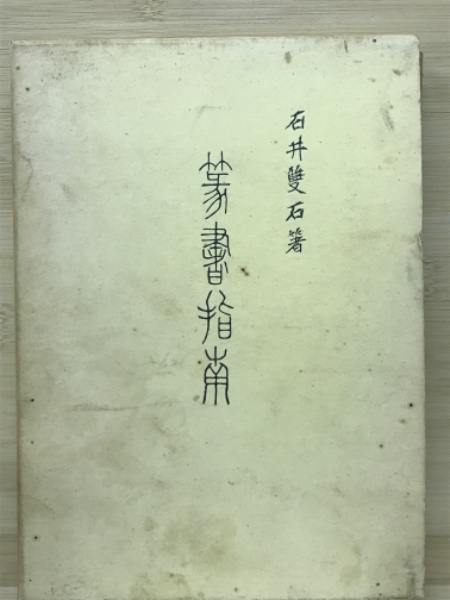 石井雙石著
篆書指南